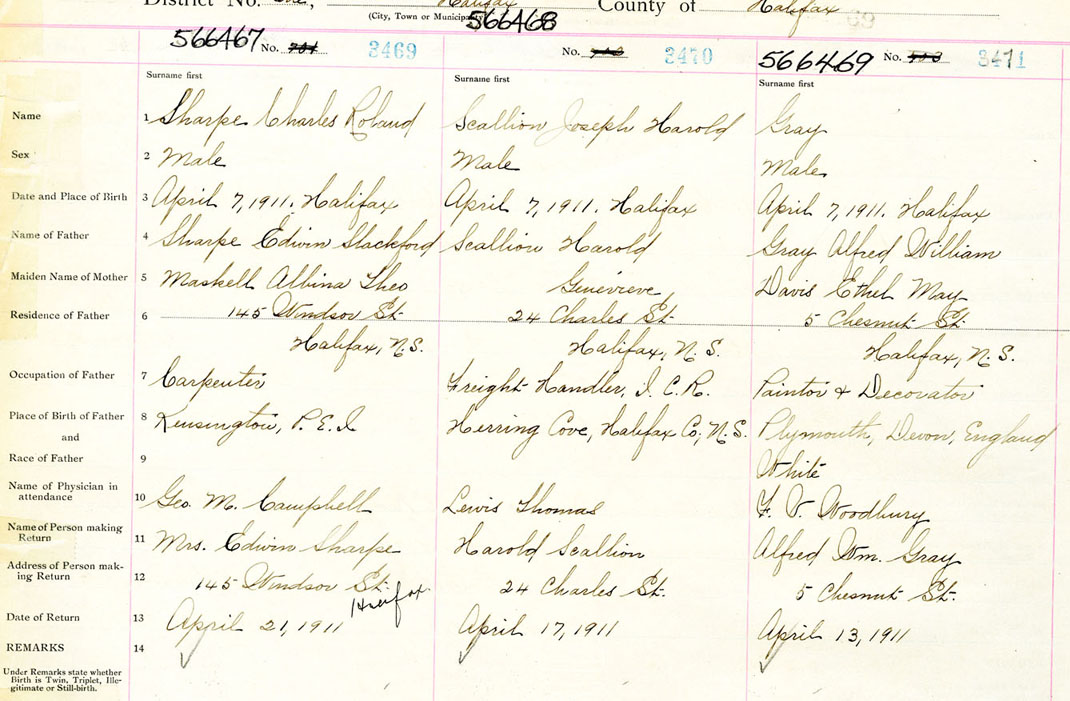 District No. One, Halifax County of Halifax
(City, Town or Municipality)
566467 No. 3469
566468 No. 3470
566469 No. 3471
Surname first Surname first Surname first
Name 1 Sharpe Charles Roland Scallion Joseph Harold Gray
Sex 2 Male Male Male
Date and Place of Birth 3 April 7, 1911. Halifax April 7, 1911. Halifax April 7, 1911. Halifax
Name of Father 4 Sharpe Edwin Slackford Scallion Harold Gray Alfred William
Maiden Name of Mother 5 Maskell Albina Theo Genevieve Davis Ethel May
Residence of Father 6 145 Windsor St. 24 Charles St. 5 Chesnut St.
Halifax, N.S. Halifax, N.S. Halifax, N.S.
Occupation of Father 7 Carpenter Freight Handler, I.C.R. Painter & Decorator
Place of Birth of Father 8 Kensington, P.E.I. Herring Cove, Halifax Co, N.S. Plymouth, Devon, England
and
Race of Father 9 White
Name of Physician in
attendance 10 Geo. M. Campbell Lewis Thomas F. V. Woodbury
Name of Person making
Return 11 Mrs. Edwin Sharpe Harold Scallion Alfred Wm. Gray
Address of Person mak-
ing Return 12 145 Windsor St. Halifax 24 Charles St. 5 Chesnut St.
Date of Return 13 April 21, 1911 April 17, 1911 April 13, 1911
REMARKS 14
Under Remarks state whether
Birth is Twin, Triplet, Ille-
gitimate or Still-birth.